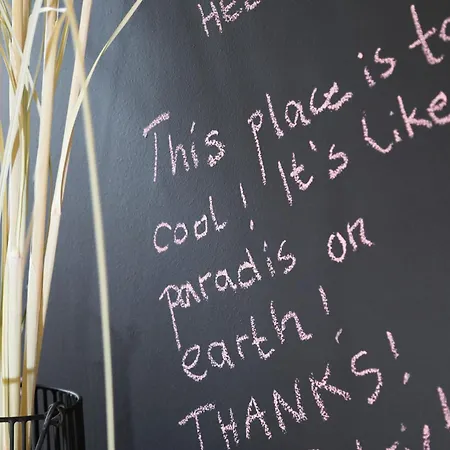 This place is to
cool! It's like
paradis on
earth!
THANKS!